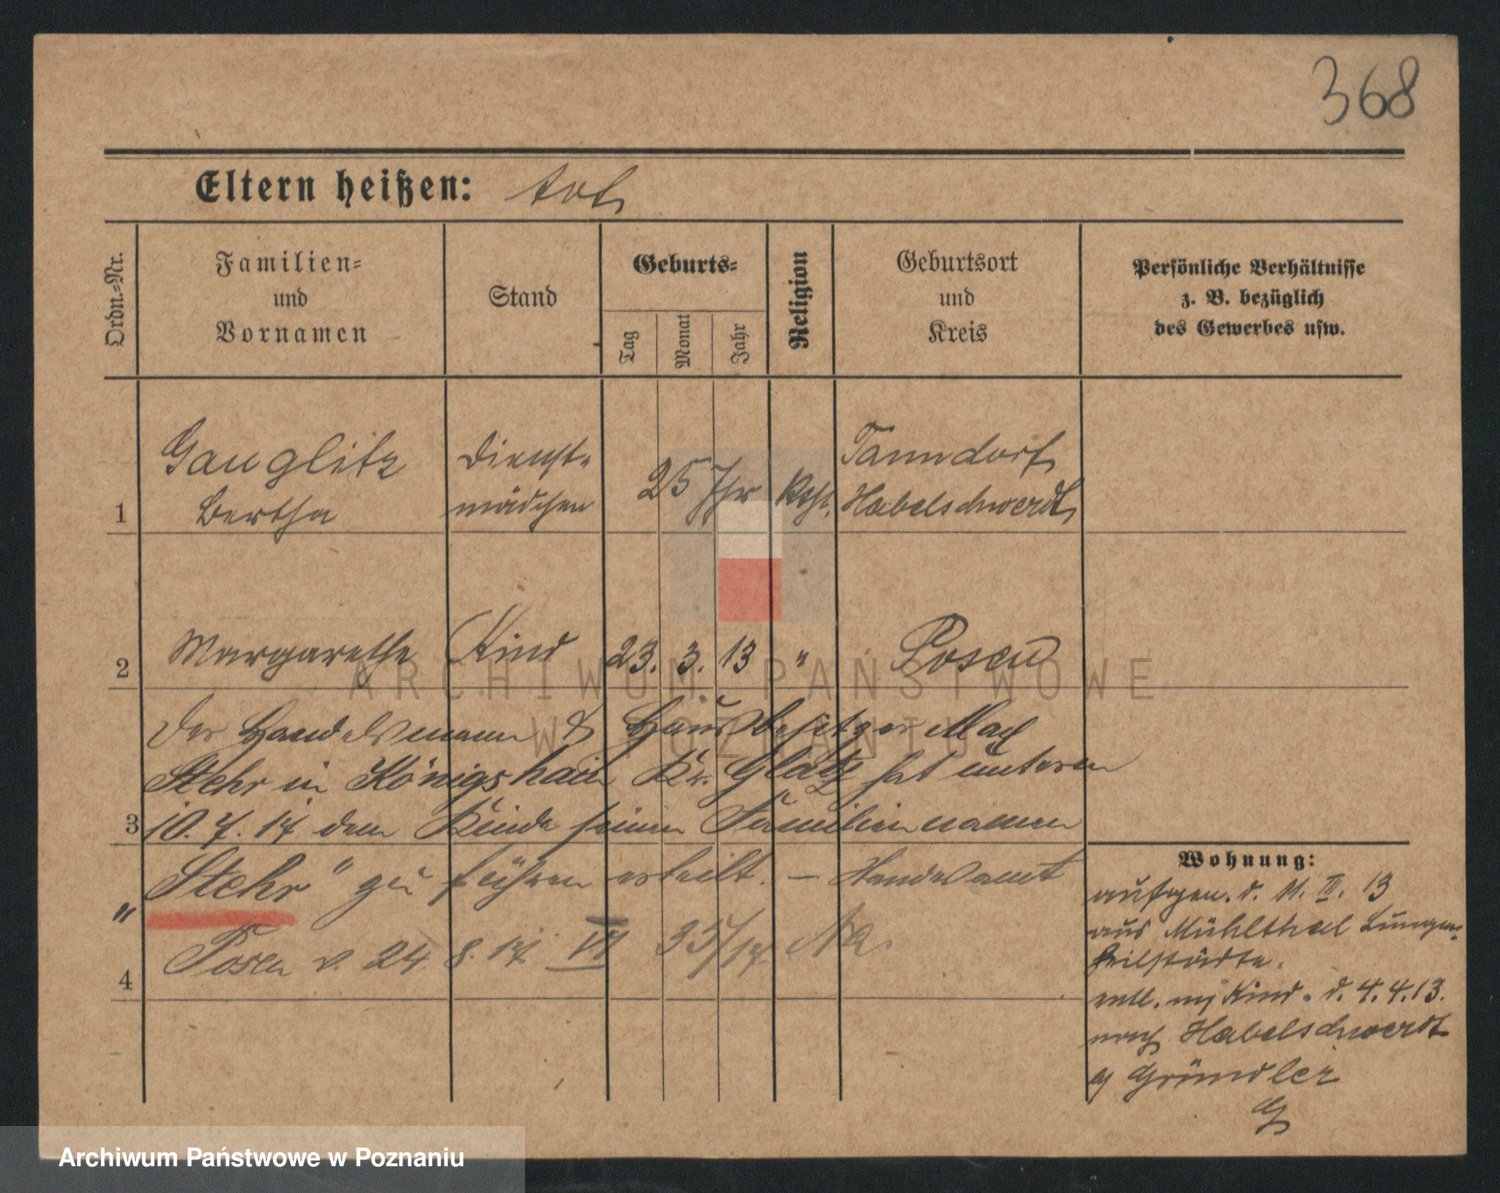 368
Eltern heißen: tot
Ordn.-Nr.
Familien-
und
Vornamen
Stand
Geburts-
Tag
Monat
Jahr
Religion
Geburtsort
und
Kreis
Persönliche Verhältnisse
z. B. bezüglich
des Gewerbes usw.
1
Gauglitz
Bertha
Dienst-
mädchen
25 Jhr
Kath.
Tanndorf
Habelschwerdt
2
Margarethe
Kind
23. 3. 13
"
Posen
Der Handelsmann & Hausbesitzer
Stehr in Königshain Kr. Glatz hat unterm
3
10. 7. 17 dem Kinde seinen Familiennamen
Stehr" zu führen erteilt. – Standesamt
"
Posen v. 24. 8. 17. VI 35/17
4
Wohnung:
aufgen. d. 11. III. 13
aus Mühlthal Lungen-
heilstädte.
entl. m Kind. d. 4. 4. 13.
nach Habelschwerdt
Gründler
ARCHIWUM PAŃSTWOWE
W POZNANIU
Archiwum Państwowe w Poznaniu